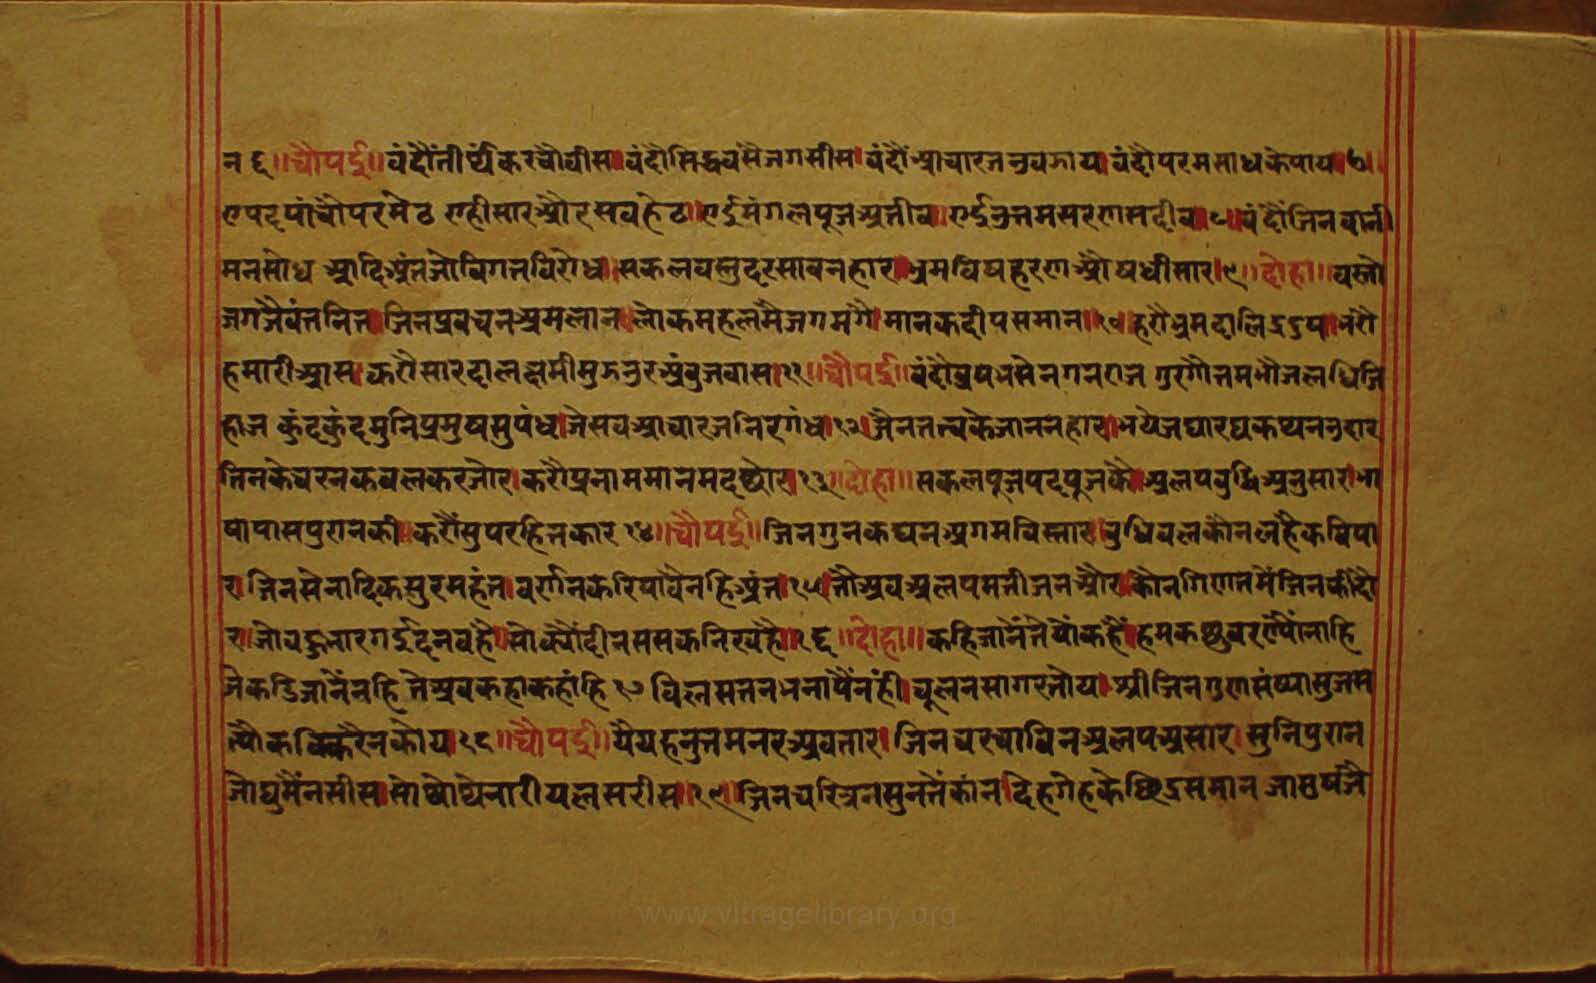 न ६॥चौपई॥वंदौंतीर्थंकरचौवीस।वंदौंसिद्धवसैजगसीस।वंदौंआचारजउवझाय।वंदौंपरमसाधकेपाय।७।
एपदपांचौपरमेठ एहीसारऔरसवहेठ।एईमंगलपूजअतीव।एईउत्तमसरणासदीव।८।वंदौंजिनवानी
मनसोध आदिअंतजोविगतविरोध।सकलवस्तुदरसावनहार।भ्रमविषहरणऔषधीसार।९॥दोहा॥वरतो
जगजैवंतनित।जिनप्रवचनअमलान।लोकमहलमैंजगमगै।मानकदीपसमान।१०।हरौभ्रमदालिद्रदुष।भरौ
हमारीआस।करौसारदालक्षमीमुझउरअंबुजवास।११॥चौपई॥वंदौंवृषभसेनगनराज गुरगौतमभौजलधिजि
हाज कुंदकुंदमुनिप्रमुषसुपंथ।जेसवआचारजनिरगंथ।१२।जैनतत्त्वकेजाननहार।भयेजथारथकथनउदार
तिनकेचरनकवलकरजोर।करौप्रनाममानमदछोर।१३॥दोहा॥सकलपूजपदपूजकै।अलपबुधिअनुसार।भा
षापासपुरानकी।करौंसुपरहितकार १४॥चौपई॥जिनगुनकथनअगमविस्तार।बुधिवलकौनलहैकविपा
र जिनसेनादिकसुरमहंत।वर्णनकरिपावैनहिअंत।१५।तौअवअलपमतीजनऔर।कौनगिणतमैंजिनकीदौ
र।जोवहुभारगईदनवहै।सोक्यौंदीनससकनिरवहै।१६॥दोहा॥कहिजानैंतेयोंकहैं।हमकछुवरण्यौंनाहि
जेकहिजानैंनहि तेअवकहाकहांहि १७ विलसततनभनापैंनंही।चूलनसागरतोय।श्रीजिनगुणसंष्यासुजस
त्यौकविकरैनकोय।१८॥चौपई॥पैयहउत्तमनरअवतार।जिनचरचाविनअलपअसार।सुनिपुरान
जोघुमैंनसीस।सोथोथेनारीयलसरीस।१९।जिनचरित्रनसुनतेंकान।दिहगेहकेछिद्रसमान जामुषजै